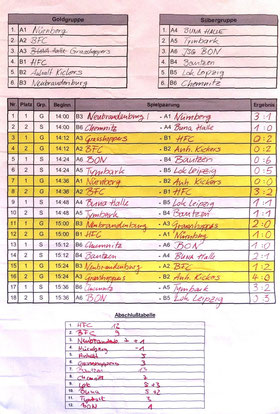 Goldgruppe
1. A1 Nürnberg
2. A2 BFC
3. A3 Grasshoppers
4. B1 HFC
5. B2 Anhalt Kickers
6. B3 Neubrandenburg
Silbergruppe
1. A4 BUNA HALLE
2. A5 Tymbark
3. A6 JSG BON
4. B4 Bautzen
5. B5 Lok Leipzig
6. B6 Chemnitz
Nr. Platz Grp. Beginn Spielpaarung Ergebnis
1 1 G 14:00 B3 Neubrandenburg - A1 Nürnberg 3 : 1
2 2 S 14:00 B6 Chemnitz - A4 Buna Halle 1 : 0
3 1 G 14:12 A3 Grasshoppers - B1 HFC 0 : 2
4 2 G 14:12 A2 BFC - B2 Anh. Kickers 0 : 2
5 1 S 14:24 A6 BON - B4 Bautzen 0 : 6
6 2 S 14:24 A5 Tymbark - B5 Lok Leipzig 0 : 5
7 1 G 14:36 A1 Nürnberg - B2 Anh. Kickers 0 : 0
8 2 G 14:36 A2 BFC - B1 HFC 3 : 2
9 1 S 14:48 A4 Buna Halle - B5 Lok Leipzig 1 : 1
10 2 S 14:48 A5 Tymbark - B4 Bautzen 1 : 1
11 1 G 15:00 B3 Neubrandenburg - A3 Grasshoppers 2 : 0
12 2 G 15:00 B1 HFC - A1 Nürnberg 1 : 0
13 1 S 15:12 B6 Chemnitz - A6 BON 1 : 0
14 2 S 15:12 B4 Bautzen - A4 Buna Halle 2 : 1
15 1 G 15:24 B3 Neubrandenburg - A2 BFC 1 : 2
16 2 G 15:24 A3 Grasshoppers - B2 Anh. Kickers 4 : 0
17 1 S 15:36 B6 Chemnitz - A5 Tymbark 3 : 2
18 2 S 15:36 A6 BON - B5 Lok Leipzig
Abschlußtabelle
1. HFC 12
2. BFC 9
3. Neubrandenb.
4. Nürnberg
5. Anhalt
6. Grasshoppers
7. Bautzen
8. Chemnitz
9. Lok
10. Buna
11. Tymbark 3
12. BON 1